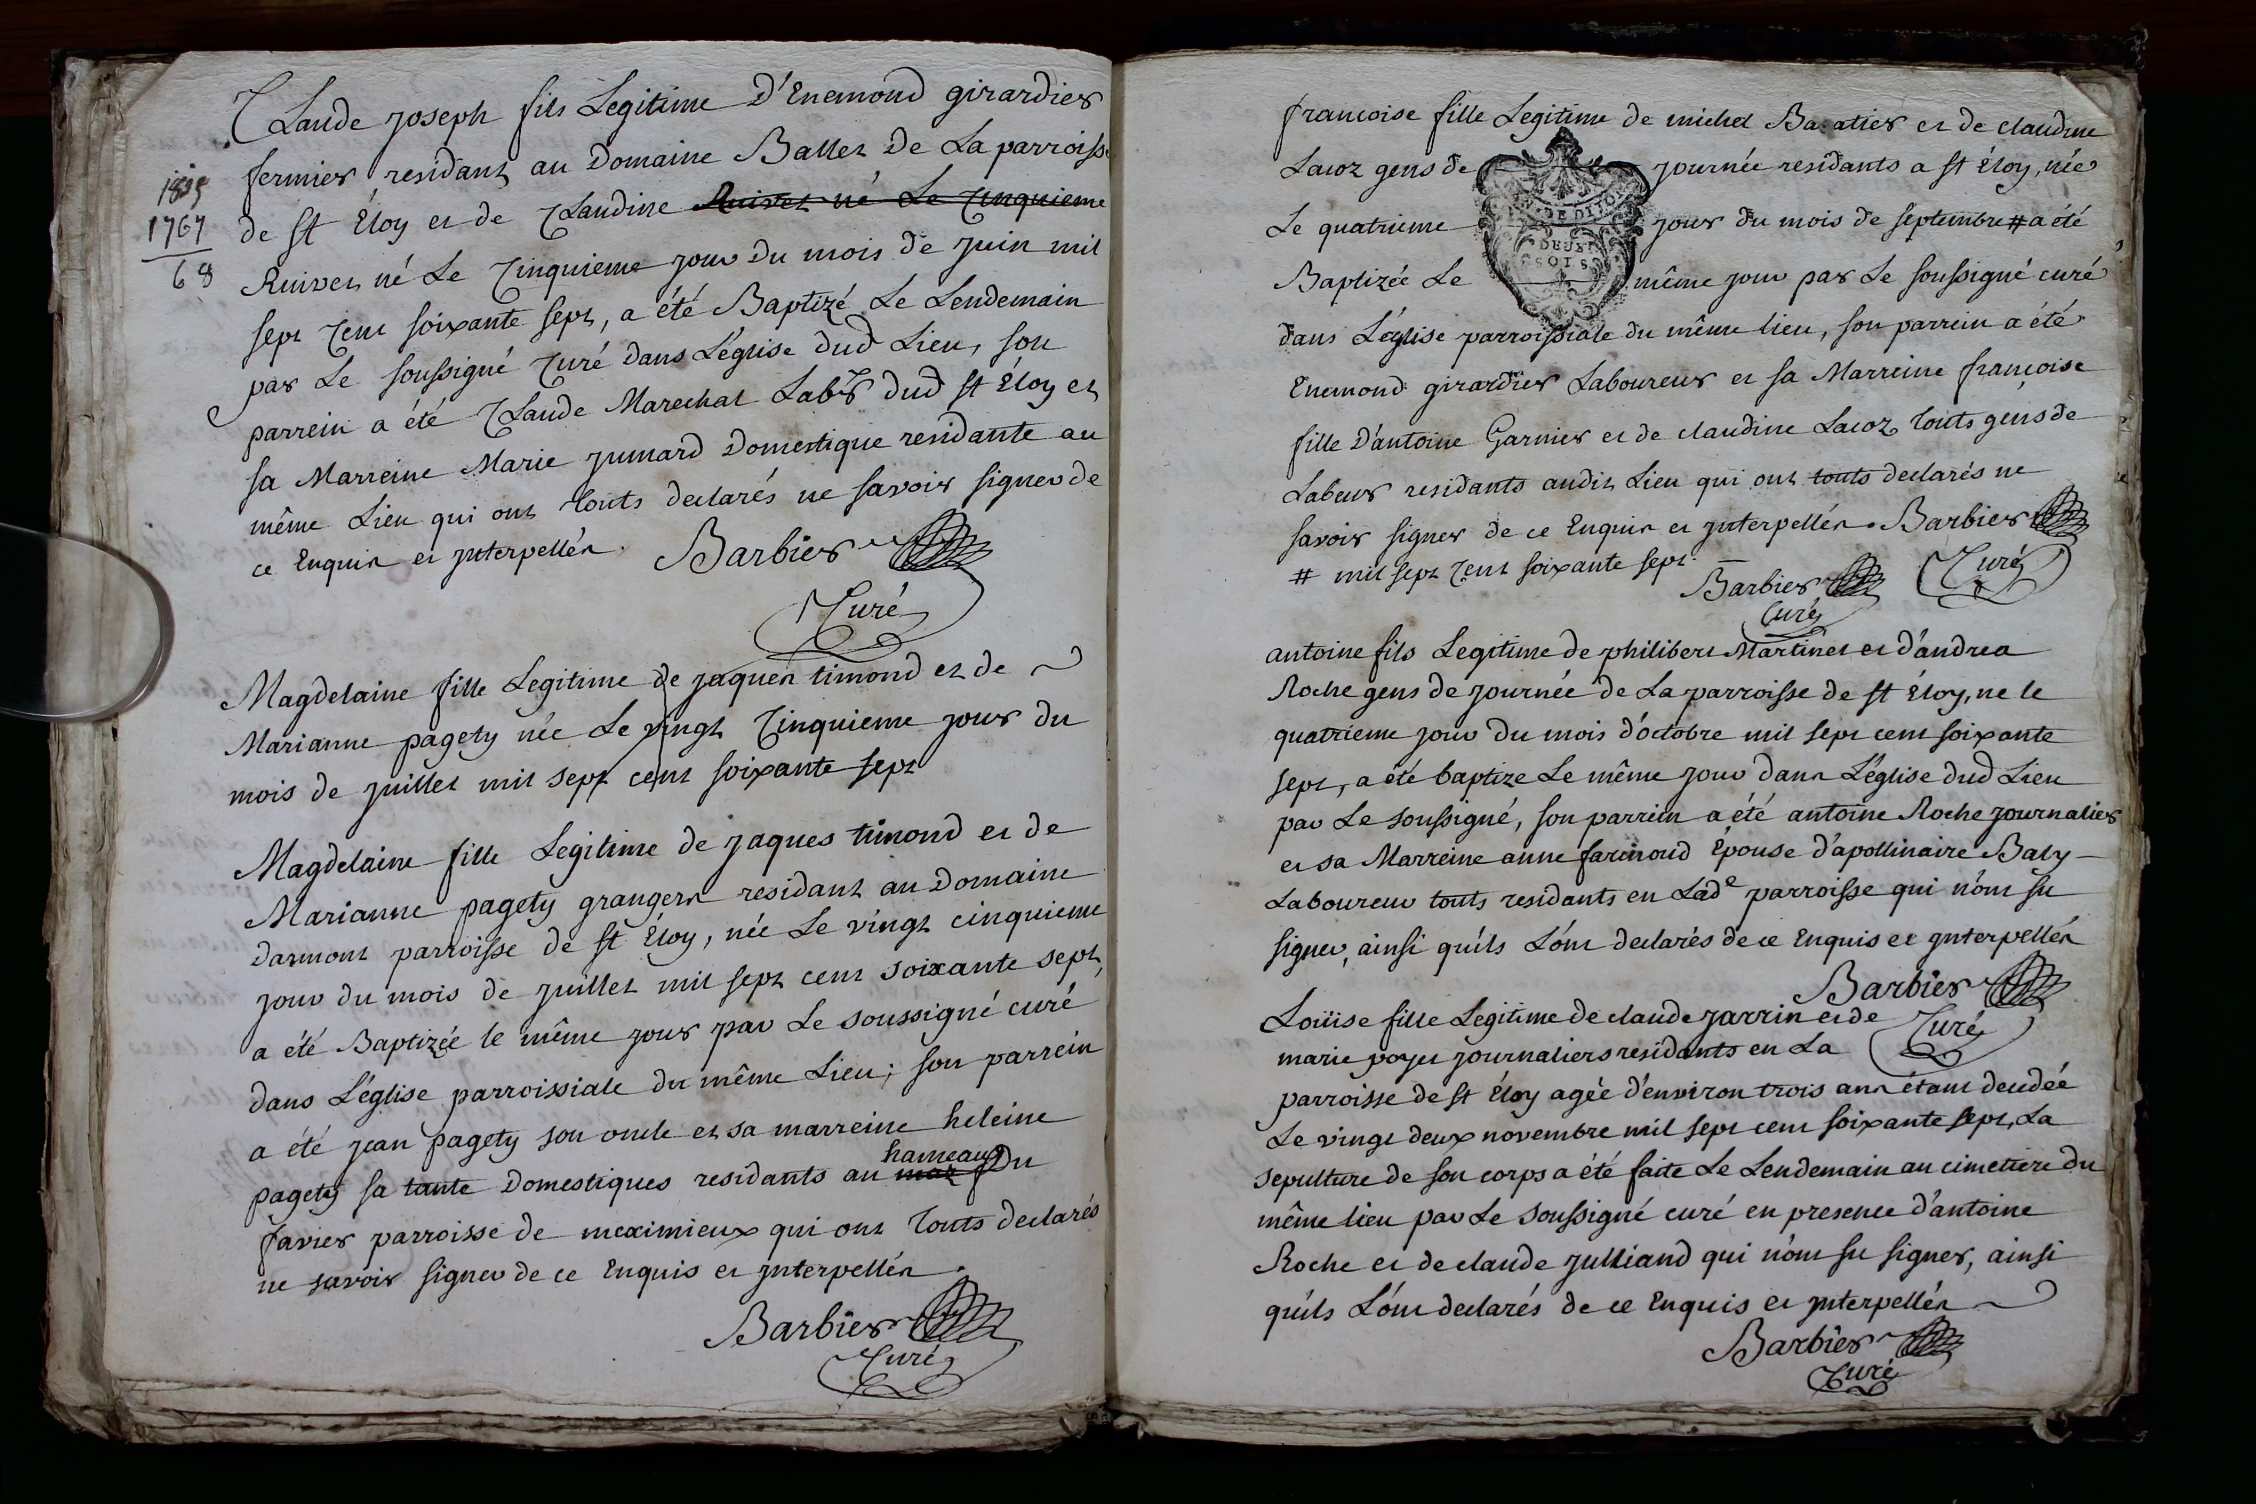 Claude joseph fils Legitime D'Enemond girardier
fermier residant au Domaine Ballet De La parroisse
de st Éloy et de Claudine Ruivet né Le Cinquieme
Ruivet né Le Cinquieme jour Du mois de juin mil
sept Cent soixante sept, a été Baptizé Le Lendemain
par Le soussigné Curé dans L'église dud Lieu, son
parrein a été Claude Marechal Labr dud st Éloy et
sa Marreine Marie jumard Domestique residante au
même Lieu qui ont touts declarés ne savoir signer de
ce Enquis et jnterpellés. Barbier
Curé
1835
1767
68
Magdelaine fille Legitime de jaques timond et de
Marianne pagety née Le vingt Cinquieme jour du
mois de juillet mil sept cent soixante sept
Magdelaine fille Legitime de jaques timond et de
Marianne pagety grangers residant au Domaine
darmont parroisse de st Éloy, née Le vingt cinquieme
jour du mois de juillet mil sept cent soixante sept,
a été Baptizée le même jour par Le soussigné curé
dans L'église parroissiale du même Lieu; son parrein
a été jean pagety son oncle et sa marreine heleine
hameau
pagety sa tante Domestiques residants au maz Du
favier parroisse de meximieux qui ont touts declarés
ne savoir signer de ce Enquis et jnterpellés.
Barbier
Curé
francoise fille Legitime de michel Baratier et de claudine
Lacoz gens de journée residants a st Éloy, née
Le quatrieme jour du mois de septembre # a été
Baptizée Le même jour par Le soussigné curé
dans L'église parroissiale du même lieu, son parrein a été
Enemond girardier Laboureur et sa Marreine françoise
fille D'antoine Garnier et de claudine Lacoz touts gens de
Labeur residants audit Lieu qui ont touts declarés ne
savoir signer de ce Enquis et jnterpellés. Barbier
Curé
# mil sept Cent soixante sept. Barbier
Curé
antoine fils Legitime de philibert Martinet et d'andrea
Roche gens de journée de La parroisse de st Éloy, ne le
quatrieme jour du mois d'octobre mil sept cent soixante
sept, a été baptize Le même jour dans L'église dud Lieu
par Le soussigné, son parrein a été antoine Roche journalier
et sa Marreine anne farinoud Épouse d'apollinaire Baly
Laboureur touts residants en Lade parroisse qui n'ont su
signer, ainsi qu'ils L'ont declarés de ce Enquis et jnterpellés
Barbier
Curé
Loüise fille Legitime de claude jarrin et de
marie poyet journaliers residants en La
parroisse de st Éloy agée d'environ trois ans étant decedée
Le vingt deux novembre mil sept cent soixante sept, La
sepulture de son corps a été faite Le Lendemain au cimetiere du
même lieu par Le soussigné curé en presence d'antoine
Roche et de claude julliand qui n'ont su signer, ainsi
qu'ils L'ont declarés de ce Enquis et jnterpellés
Barbier
Curé